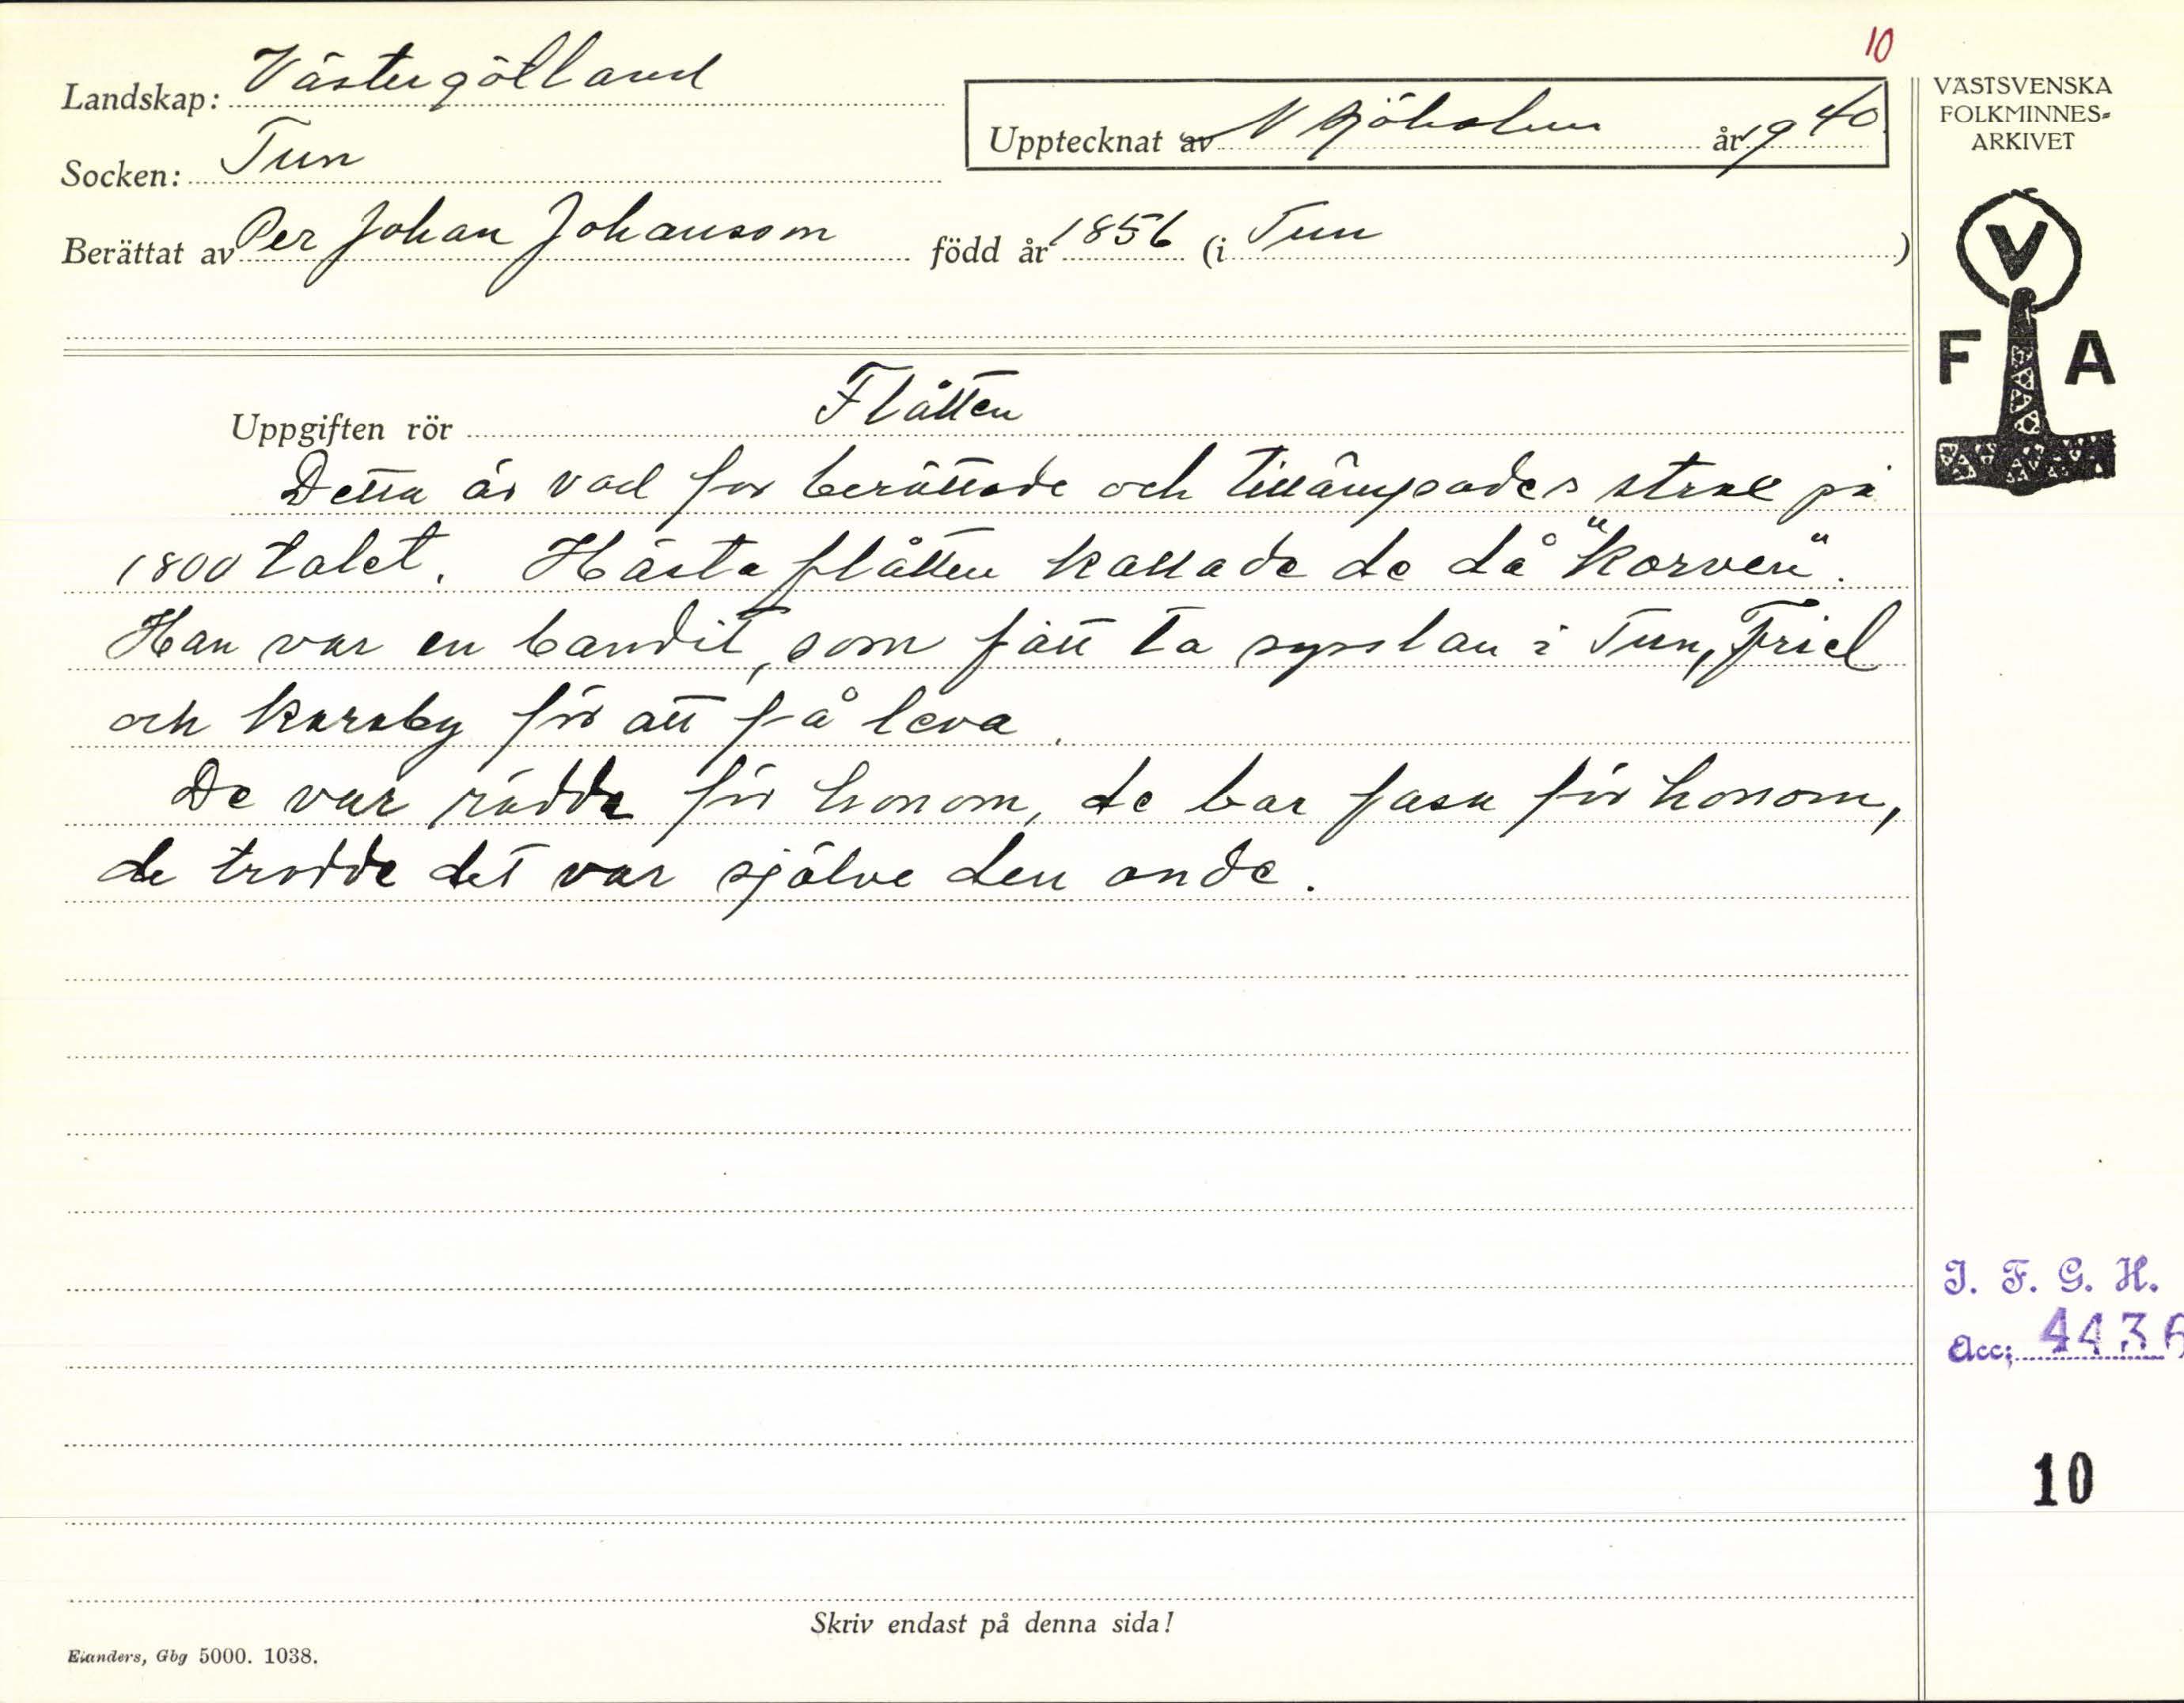 10
Landskap: Västergötland
Socken: Tun
Upptecknat av N Sjöholm år 1940
Berättat av Per Johan Johansson född år 1856 (i Tun)
Uppgiften rör Flåtten
Detta är vad far berättade och tillämpades strax på
1800 talet. Hästaflåtten kallade de då "Korven".
Han var en bandit, som fått ta sysslan i Tun, Friel
och Karaby för att få leva.
De var rädda för honom, de bar fasa för honom,
de trodde det var själve den onde.
Skriv endast på denna sida!
Elanders, Gbg 5000. 1038.
VÄSTSVENSKA
FOLKMINNES-
ARKIVET
V
F A
I. F. G. H.
Acc; 4436
10